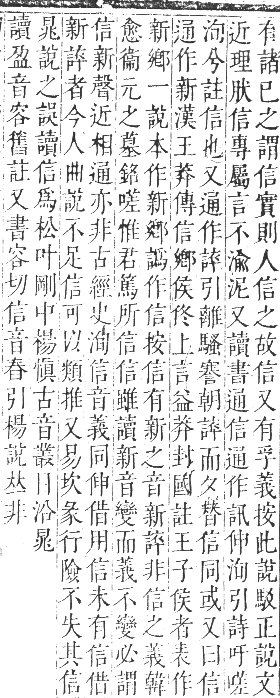 有諸己之謂信實則人信之故信又有孚義按此說駁正說文
近理肰信專屬言不渝泥又讀書通信通作訊伸洵引詩吁嗟
洵兮註信也又通作誶引離騷謇朝誶而夕替信同或又曰信
通作新漢王莽傳信鄉侯佟上言益莽封國註王子侯者表作
新鄉一說本作新鄉譌作信按信有新之音新誶非信之義韓
愈衞元之墓銘嗟惟君篤所信信雖讀新音變而義不變必謂
信新聲近相通亦非古經史洵信音義同伸借用信未有信借
新誶者今人曲說不足信可以類推又易坎彖行險不失其信
晁說之誤讀信爲松叶剛中楊慎古音叢目沿晁
讀盈音容舊註又書容切信音舂引楊說𠀤非